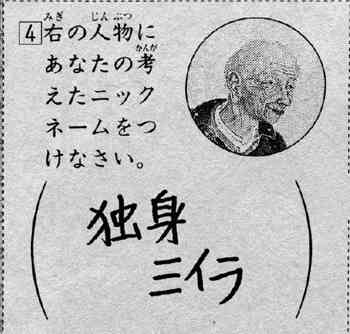 4 右の人物に
あなたの考
えたニック
ネームをつ
けなさい。
独身
ミイラ